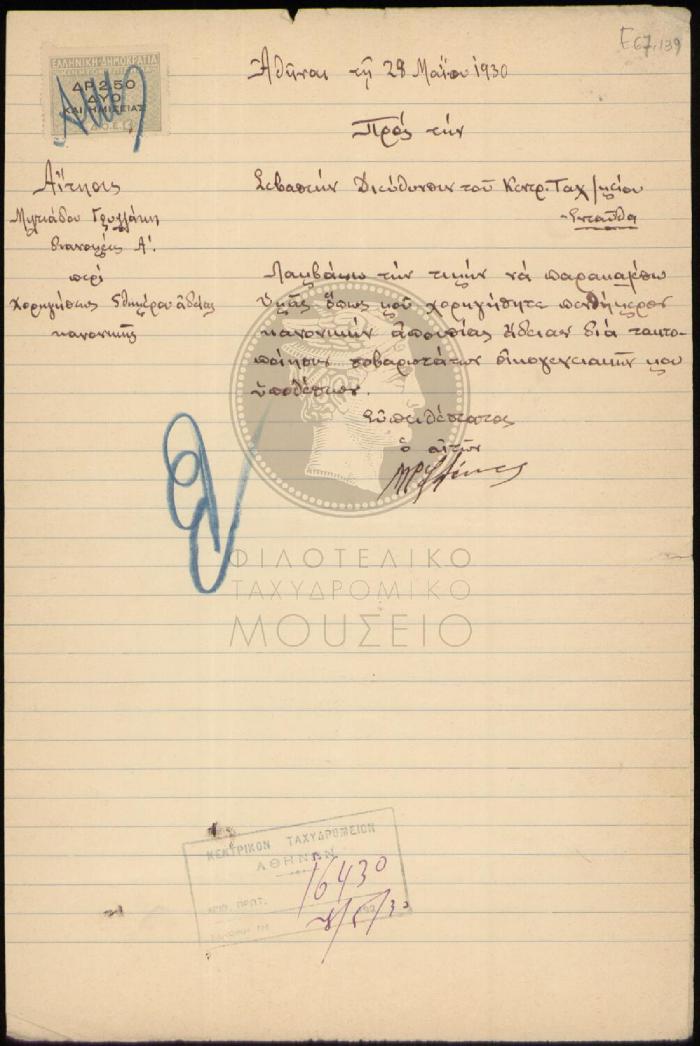 Ε67.139
ΕΛΛΗΝΙΚΗ ΔΗΜΟΚΡΑΤΙΑ
ΔΡ 2.50
ΔΥΟ
ΚΑΙ ΗΜΙΣΕΙΑΣ
Δ.Ο.Ε.
Ἀθῆναι τῇ 28 Μαΐου 1930
Πρός τήν
Σεβαστήν Διεύθυνσιν τοῦ Κεντρ. Ταχ/μείου
Ἐνταῦθα
Αἴτησις
Μιλτιάδου
διανομέως Α'.
περί
χορηγήσεως 5θημέρου ἀδείας
κανονικῆς
Λαμβάνω τήν τιμήν νά παρακαλέσω
Ὑμᾶς ὅπως μοῦ χορηγήσητε πενθήμερον
κανονικήν ἀπουσίας ἄδειαν διά τακτο-
ποίησιν σοβαρωτάτων οἰκογενειακῶν μου
ὑποθέσεων.
Εὐπειθέστατος
ὁ αἰτῶν
ΦΙΛΟΤΕΛΙΚΟ
ΤΑΧΥΔΡΟΜΙΚΟ
ΜΟΥΣΕΙΟ
ΚΕΝΤΡΙΚΟΝ ΤΑΧΥΔΡΟΜΕΙΟΝ
ΑΘΗΝΩΝ
ΑΡΙΘ. ΠΡΩΤ. 16430
28/5/30